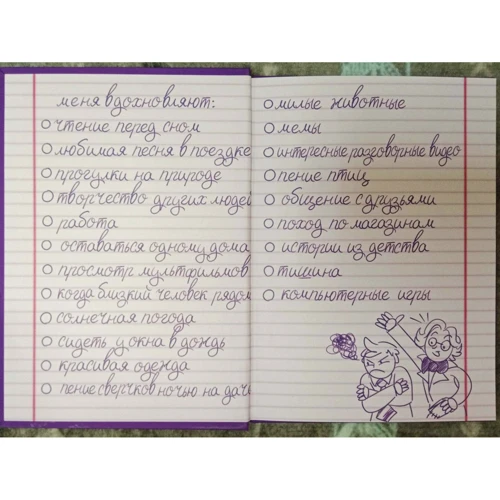 меня вдохновляют:
чтение перед сном
любимая песня в поездке
прогулки на природе
творчество других людей
работа
оставаться одному дома
просмотр мультфильмов
когда близкий человек рядом
солнечная погода
сидеть у окна в дождь
красивая одежда
пение сверчков ночью на даче
милые животные
мемы
интересные разговорные видео
пение птиц
общение с друзьями
поход по магазинам
истории из детства
тишина
компьютерные игры